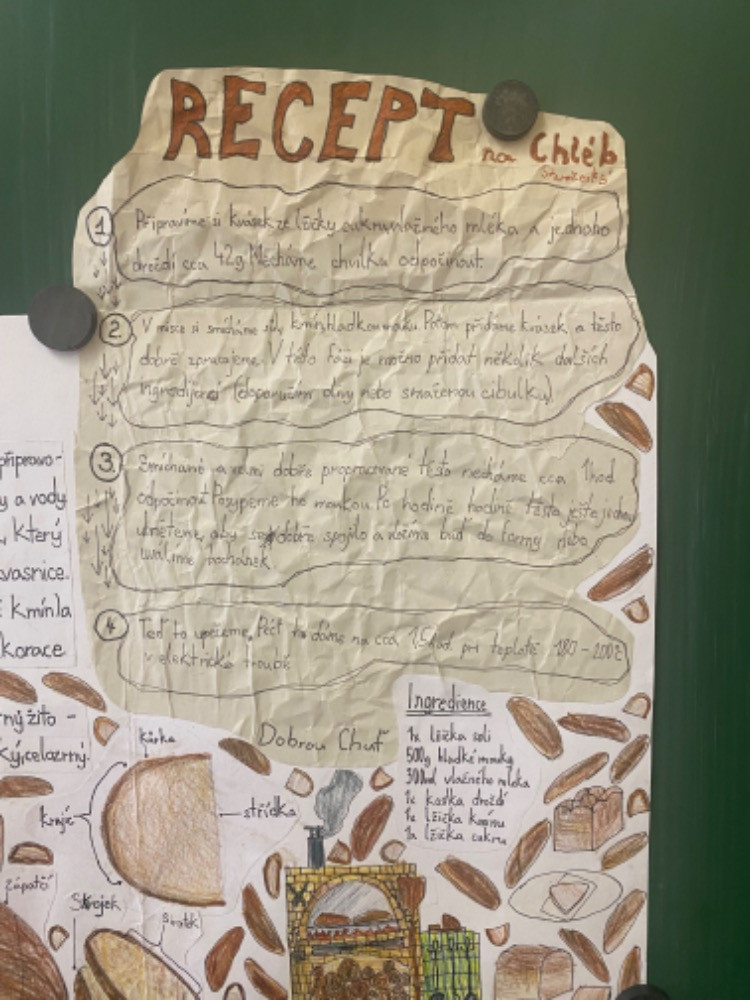 RECEPT
na Chléb
1 Připravíme si kvásek ze lžičky cukru, vlažného mléka a jednoho
droždí cca 42g. Necháme chvilku odpočinout.
2 V misce si smícháme sůl, kmín, hladkou mouku. Potom přidáme kvásek a těsto
dobře zpracujeme. V této fázi je možno přidat několik dalších
ingrediencí (doporučím olivy nebo smaženou cibulku).
3 Smíchané a velmi dobře propracované těsto necháme cca 1hod
odpočinout. Posypeme ho moukou. Po hodině hodině těsto ještě jednou
uhněteme, aby se dobře spojilo a vložíme buď do formy nebo
uválíme bochánek.
4 Teď to upečeme. Péct to dáme na cca 1,5hod při teplotě 180-200°C
v elektrické troubě.
Dobrou Chuť
Ingredience
1x lžička soli
500g hladké mouky
300ml vlažného mléka
1x kostka droždí
1x lžička kmínu
1x lžička cukru
připravo-
y a vody
, který
vasnice.
kmín la
korace
ný žito -
ký, celozrný.
kůrka
krajíc
střídka
zápatčí
Skrojek